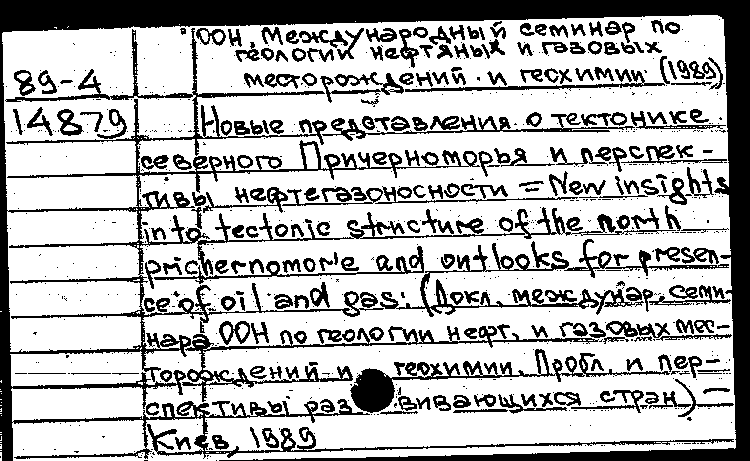 ООН. Международный семинар по
геологии нефтяных и газовых
89-4 месторождений и геохимии (1989)
14879 Новые представления о тектонике
северного Причерноморья и перспек-
тивы нефтегазоносности = New insights
into tectonic structure of the north
prichernomor'e and outlooks for presen-
ce of oil and gas: (Докл. междунар. семи-
нара ООН по геологии нефт. и газовых мес-
торождений и геохимии. Пробл. и пер-
спективы развивающихся стран) —
Киев, 1989